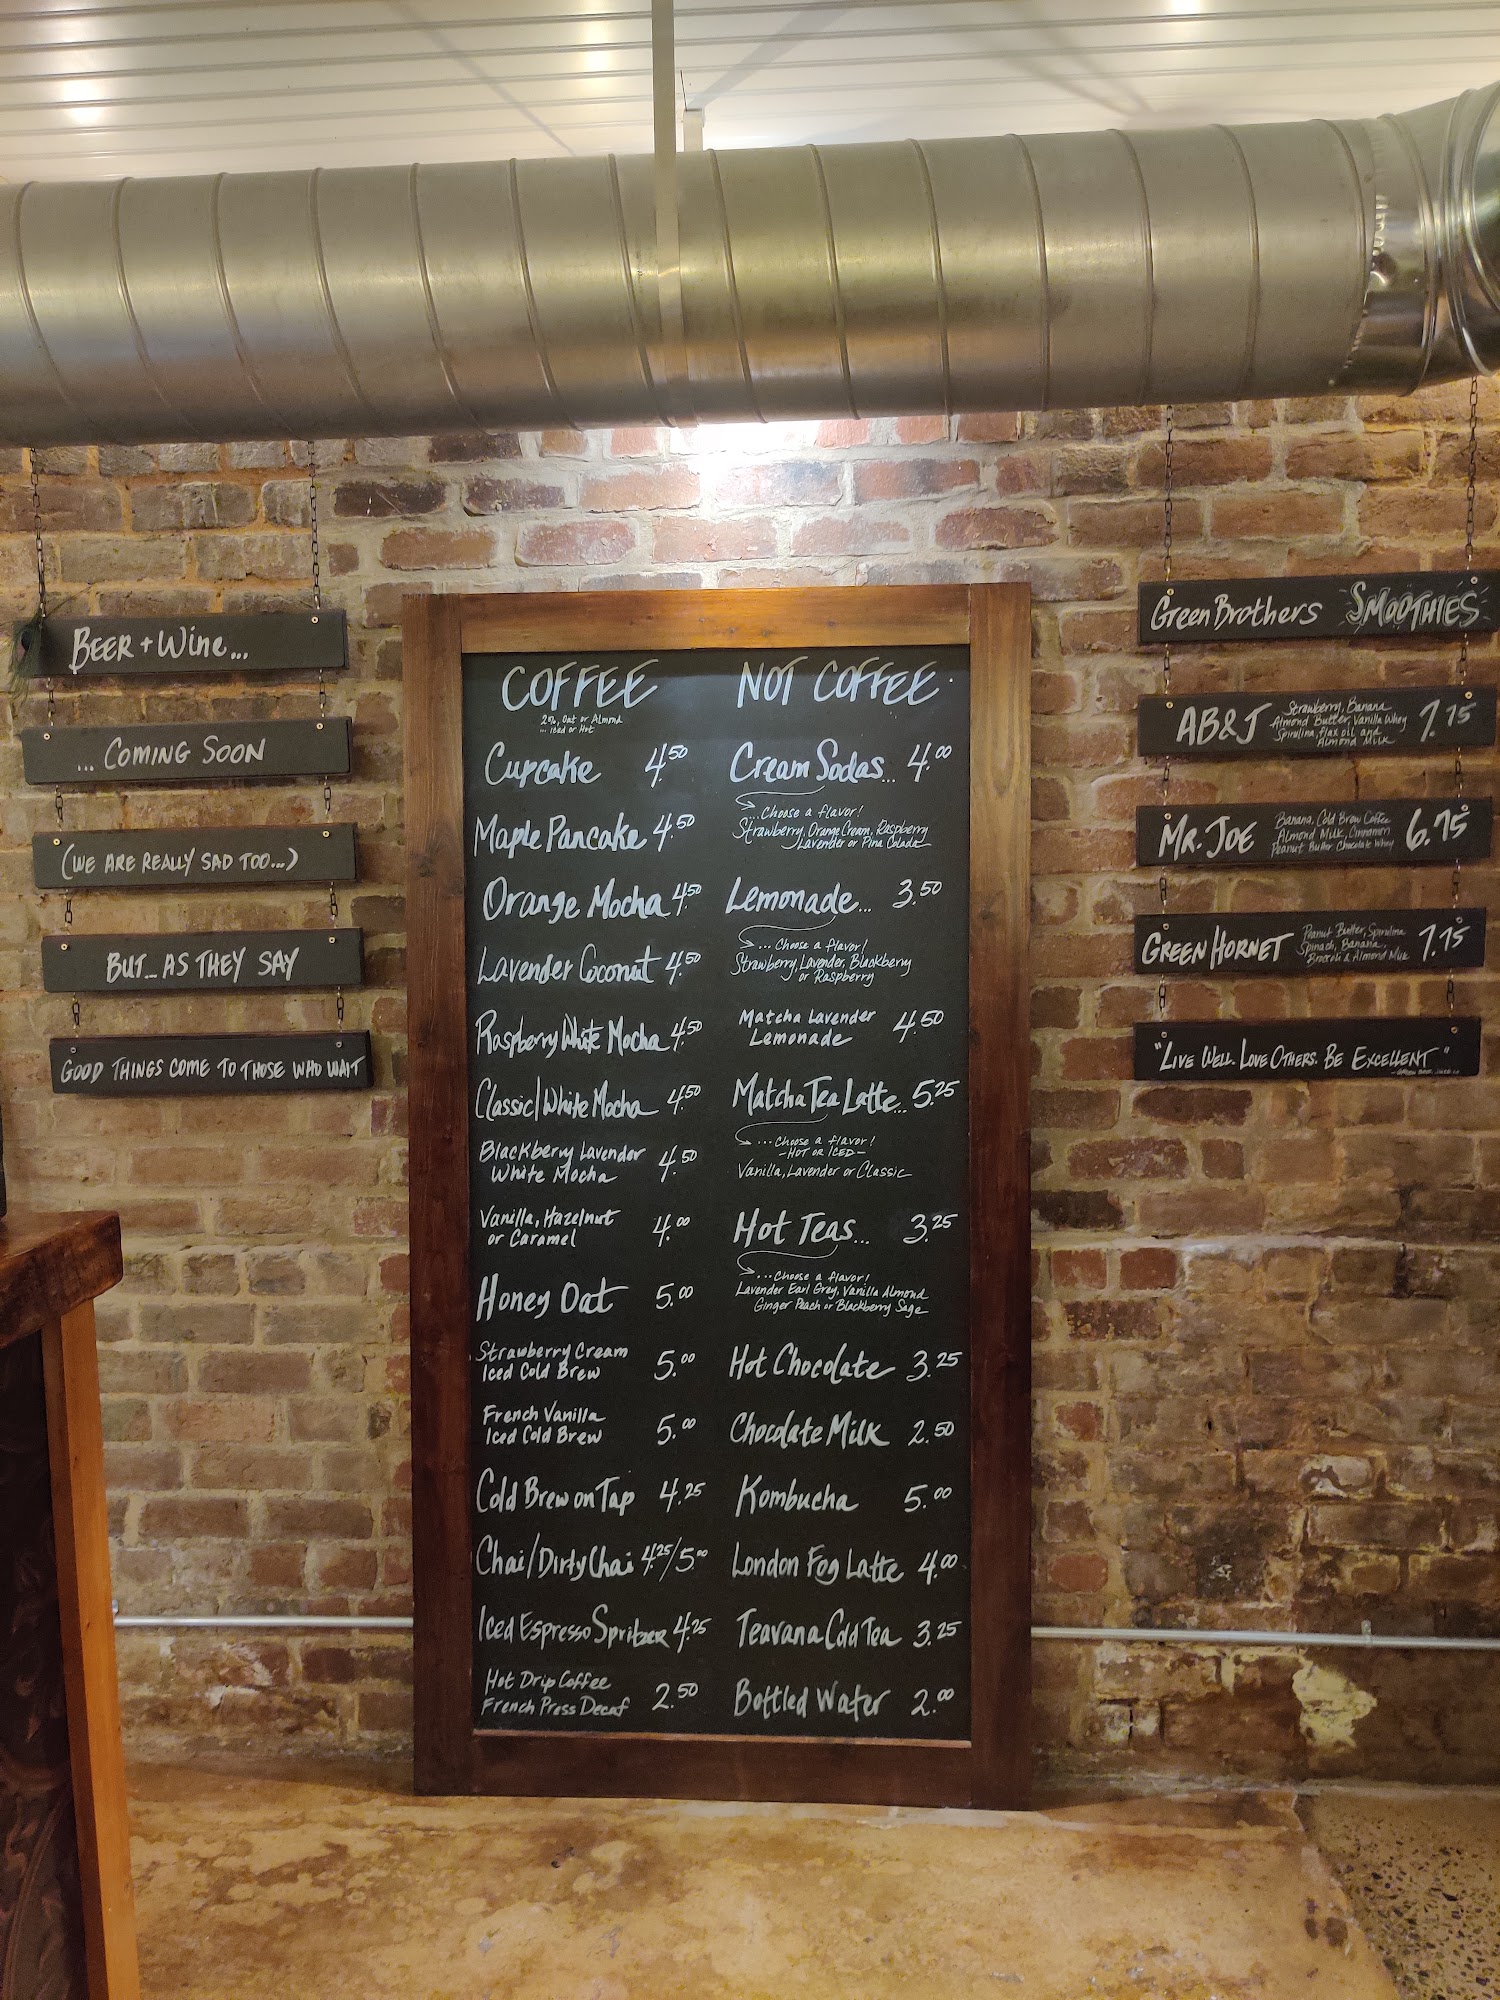 BEER + WINE...
... COMING SOON
(WE ARE REALLY SAD TOO...)
BUT... AS THEY SAY
GOOD THINGS COME TO THOSE WHO WAIT
COFFEE
2%, Oat or Almond
... Iced or Hot
Cupcake 4.50
Maple Pancake 4.50
Orange Mocha 4.50
Lavender Coconut 4.50
Raspberry White Mocha 4.50
Classic/White Mocha 4.50
Blackberry Lavender
White Mocha 4.50
Vanilla, Hazelnut
or Caramel 4.00
Honey Oat 5.00
Strawberry Cream
Iced Cold Brew 5.00
French Vanilla
Iced Cold Brew 5.00
Cold Brew on Tap 4.25
Chai/Dirty Chai 4.25/5.00
Iced Espresso Spritzer 4.25
Hot Drip Coffee
French Press Decaf 2.50
NOT COFFEE
Cream Sodas... 4.00
... Choose a flavor!
Strawberry, Orange Cream, Raspberry
Lavender or Pina Colada
Lemonade... 3.50
... Choose a flavor!
Strawberry, Lavender, Blackberry
or Raspberry
Matcha Lavender
Lemonade 4.50
Matcha Tea Latte... 5.25
... Choose a flavor!
-HOT OR ICED-
Vanilla, Lavender or Classic
Hot Teas... 3.25
... Choose a flavor!
Lavender Earl Grey, Vanilla Almond
Ginger Peach or Blackberry Sage
Hot Chocolate 3.25
Chocolate Milk 2.50
Kombucha 5.00
London Fog Latte 4.00
Teavana Cold Tea 3.25
Bottled Water 2.00
Green Brothers SMOOTHIES
AB&J Strawberry, Banana
Almond Butter, Vanilla Whey
Spirulina, flax oil and
Almond Milk 7.75
MR. JOE Banana, Cold Brew Coffee
Almond Milk, Cinnamon
Peanut Butter Chocolate Whey 6.75
GREEN HORNET Peanut Butter, Spirulina
Spinach, Banana,
Broccoli & Almond Milk 7.75
"LIVE WELL. LOVE OTHERS. BE EXCELLENT"